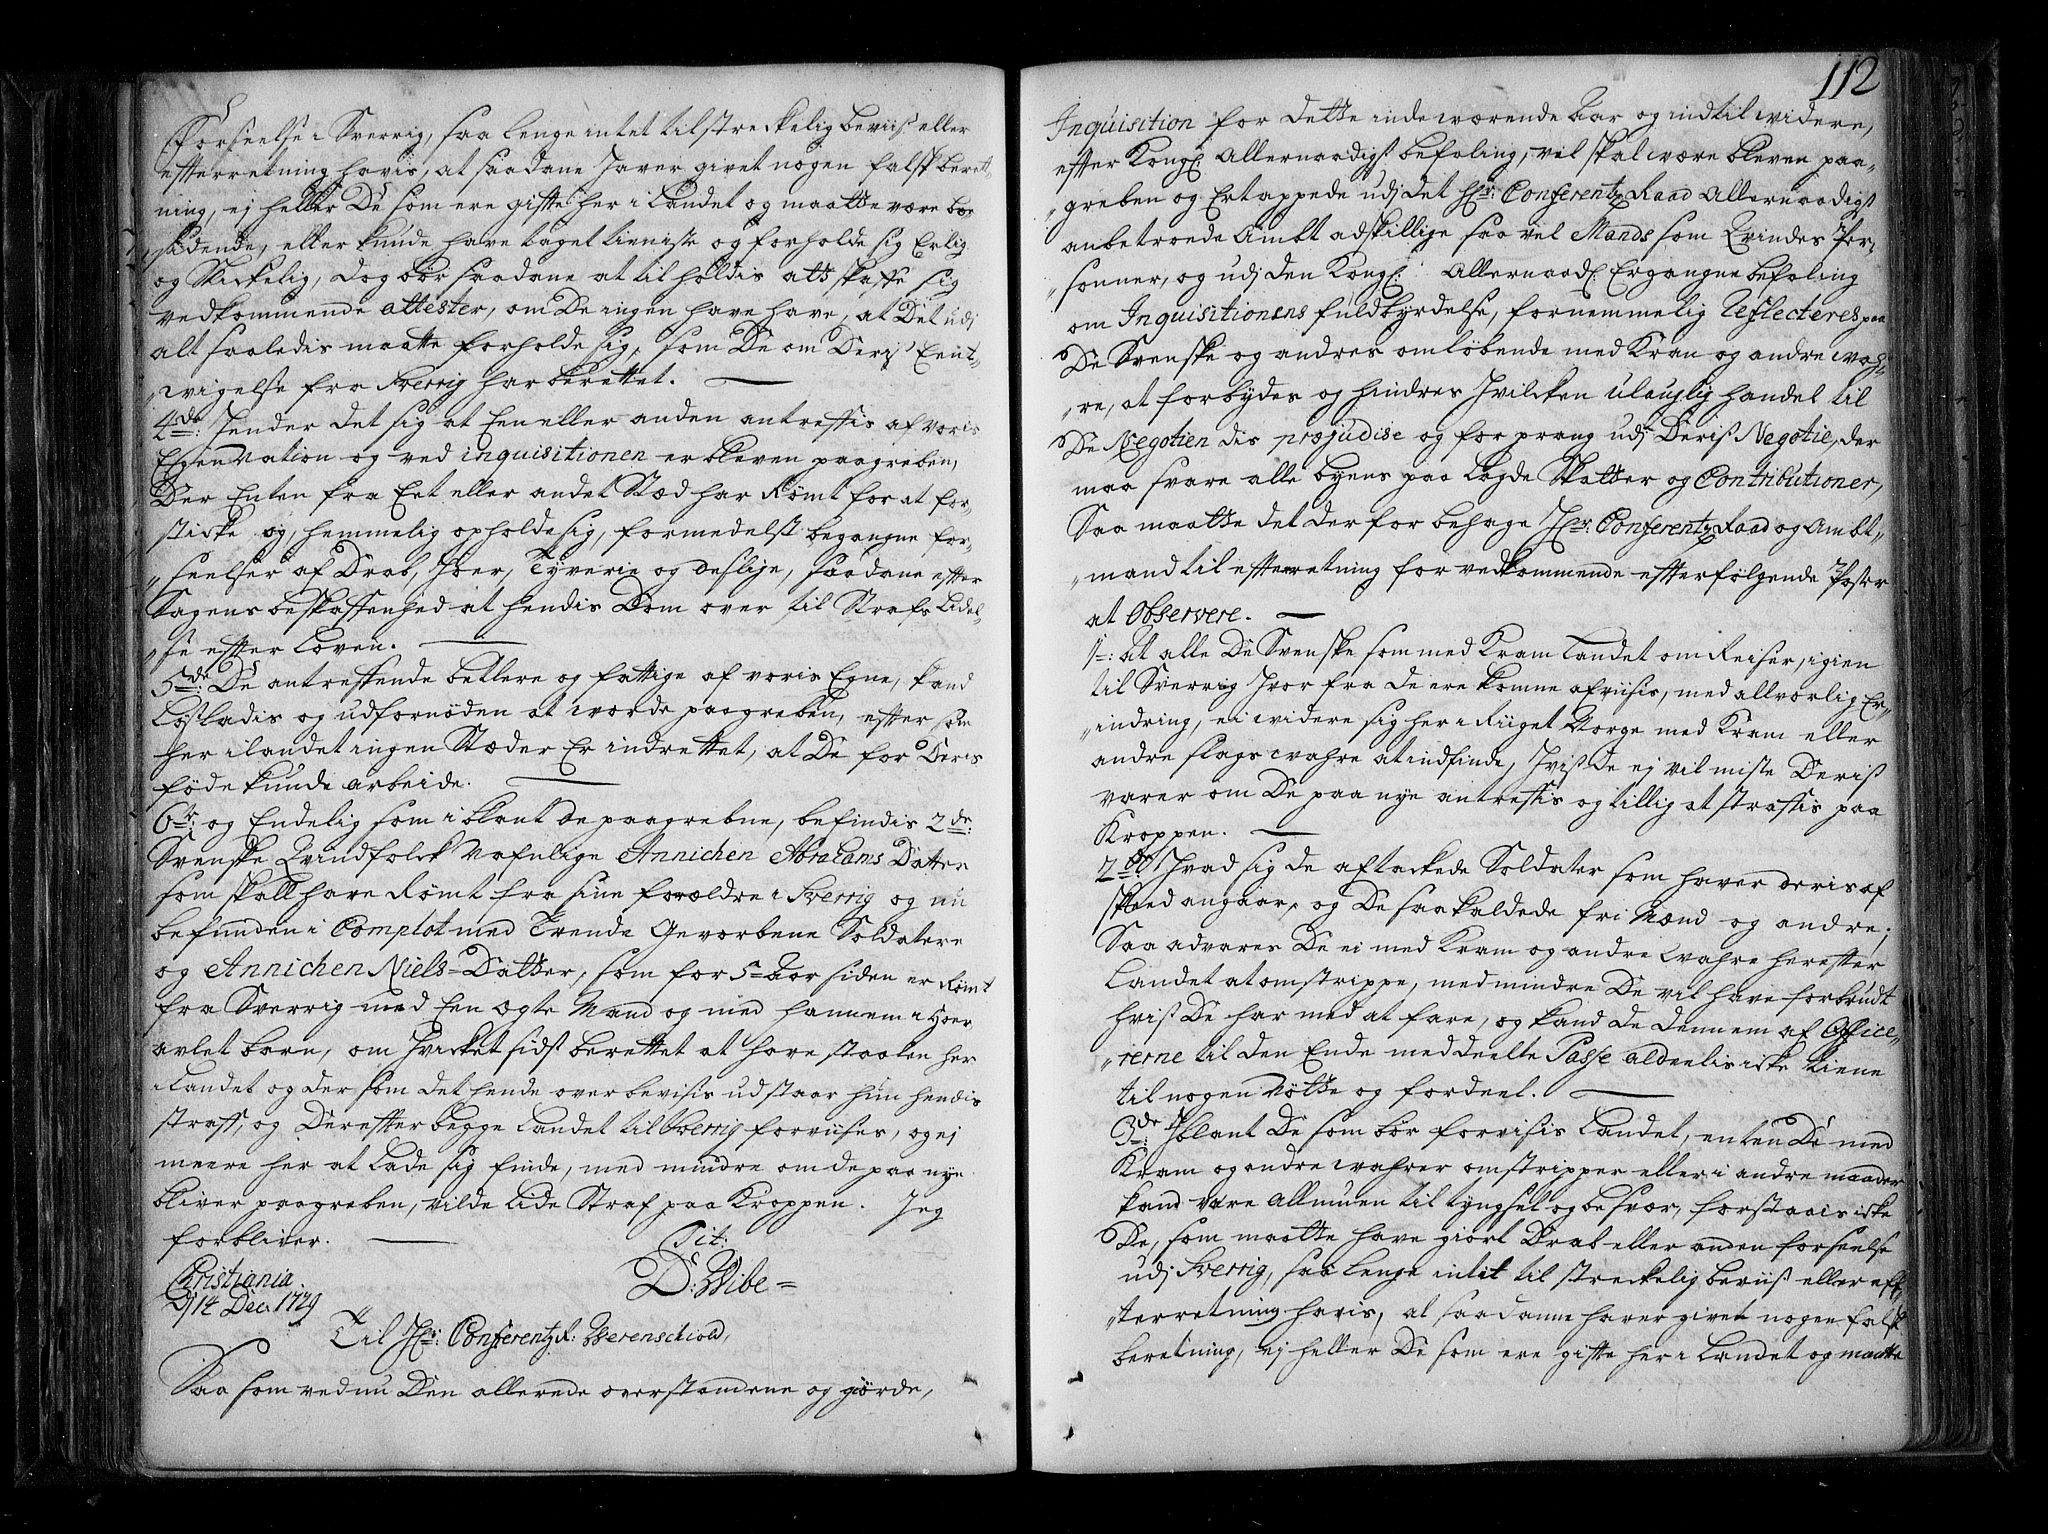 Forseelse i Sverrig, saa lenge intet tilstreckelig beviiß eller
efterretning havis, at saadane haver givet nogen falsk beret,
ning, ej heller De som ere gifte her i Landet og maatte være boe
siddende, eller kunde have taget tieniste og forholde sig Erlig
og Skickelig, dog bør saadane at tilholdis att skaffe sig
vedkommende attester, om De ingen have have, at Det udj
alt saaledis maatte forholde sig, som De om Deriß Eent-
„vigelse fra Sverrig har berettet.
4de: Hender det sig at Een eller anden antreffis af voris
Egen Nation og ved inquisitionen er bleven paagreben,
Der Enten fra Eet eller andet Stæd har Rømt for at for-
sticke og hemmelig opholde sig, formedelst begangne for-
„seelser af Drab, Hoer, Tyverie og deslige, saadane efter
Sagens beskaffenhed at hendis Dom over til Strafs Lidel-
„se efter Loven.
5de: De antreffende betlere og fattige af voris Egne, kand
Løsladis og ufornøden at worde paagreben, efter som
her i landet ingen Stæder Er indrettet, at De for Deris
føde kunde arbeide.
6te: og Endelig som i blant de paagrebne, befindis 2de:
Svenske Qvindfolck Nafnlige Annichen Abrahams Datter
som skall have Rømt fra sine forældre i Sverrig og nu
befunden i Complot med Trende Gevorbene Soldatere
og Annichen Niels=Datter, som for 5 Aar siden er Rømt
fra Sverrig med Een ægte Mand og med hannem i Hoer
avlet børn, om hvicket sidst berettet at have staalen her
i Landet og der som det hende overbevisis udstaar hun hendis
straff, og Derefter begge Landet til Sverrig forviises, og ej
meere her at lade sig finde, med mindre om de paa nye
bliver paagreben, vilde lide Straf paa Kroppen. Jeg
forbliver.
Tit:
Christiania
D: 14 Decr 1729
D: Wibe =
Til Hr: Conferentz R: Werenschiold,
Saa som ved nu Den allerede overstandene og giørde,
112
Inquisition for dette inde wærende Aar og indtil widere,
efter Kongl Allernaadigst befaling, vil skal være bleven paa-
„greben og Ertappede udj det Hr: Conferentz Raad Allernaadigst
anbetroede Ambt adskillige saa vel Mands som Qvindes Per-
„sonner, og udj den Kongl: Allernaad: Ergangne befaling
om Inquisitionens fuldbyrdelse, fornemmelig Reflecteres paa
De Svenske og andres omløbende med Kram og andre wah-
„re, at forbydes og hindres hvilcken ulauglig handel til
De Negotien dis præjudise og forprang udj Deriß Negotie, der
maa svare alle byens paa Lagde Skatter og Contributioner,
Saa maatte det derfor behage Hr: Conferentz Raad og Ambt-
„mand til efterretning for vedkommende efterfølgende Poster
at Observere.
1: At alle De Svenske som med Kram Landet om Reiser, igien
til Sverrig hvor fra de ere komne afviisis, med allvorlig Er-
„indring, ei widere sig her i Riiget Norge med Kram eller
andre slags wahre at indfinde, hviß De ej vil miste Deriß
varer om De paa nye antreffis og tillig at straffis paa
Kroppen.
2do Hvad sig de aftackede Soldater som haver deris af
skeed angaar, og De saa kaldede fri Mænd og andre;
Saa advares De ei med Kram og andre Wahre herefter
Landet at omstrippe, med mindre De vil have forbrudt
hviß De har med at fare, og kand de dennem af Office-
„rerne til den Ende meddeelte Passe aldeelis icke tiene
til nogen Nötte og fordeel.
3de: Iblant De som bør forvisis Landet, enten De med
Kram og andre wahrer omstripper eller i andre maader
kand være Allmuen til tyngsel og besvær, forstaais icke
De, som maatte have giort Drab eller anden forseelse
udj Sverrig, saa lenge intet til streckelig beviiß eller eff,
„terretning havis, at saadanne haver givet nogen falsk
beretning, ej heller De som ere gifte her i Landet og maatte